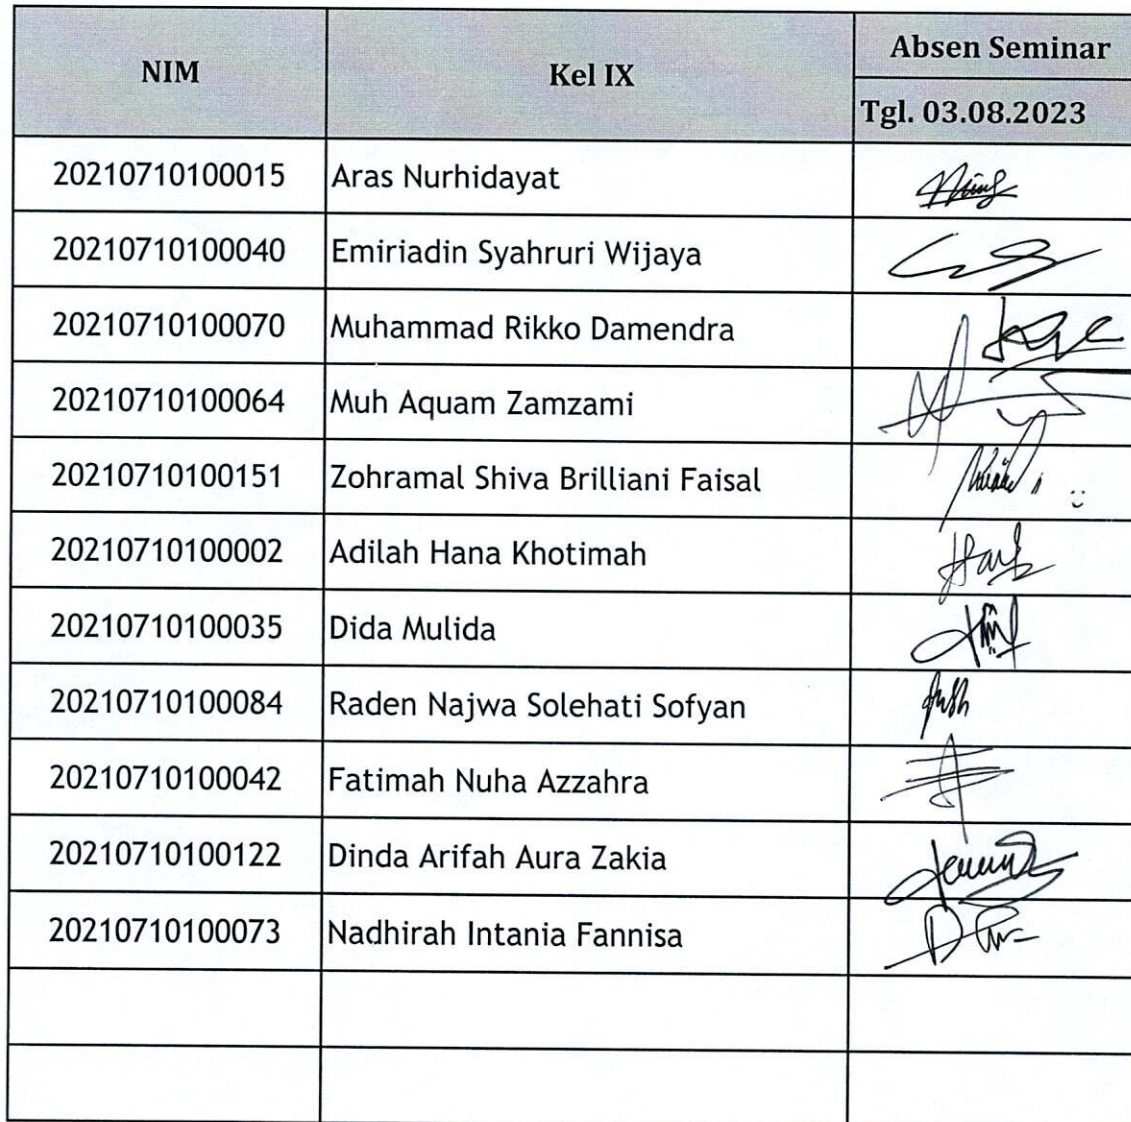 NIM Kel IX Absen Seminar
Tgl. 03.08.2023
20210710100015 Aras Nurhidayat
20210710100040 Emiriadin Syahruri Wijaya
20210710100070 Muhammad Rikko Damendra
20210710100064 Muh Aquam Zamzami
20210710100151 Zohramal Shiva Brilliani Faisal
20210710100002 Adilah Hana Khotimah
20210710100035 Dida Mulida
20210710100084 Raden Najwa Solehati Sofyan
20210710100042 Fatimah Nuha Azzahra
20210710100122 Dinda Arifah Aura Zakia
20210710100073 Nadhirah Intania Fannisa